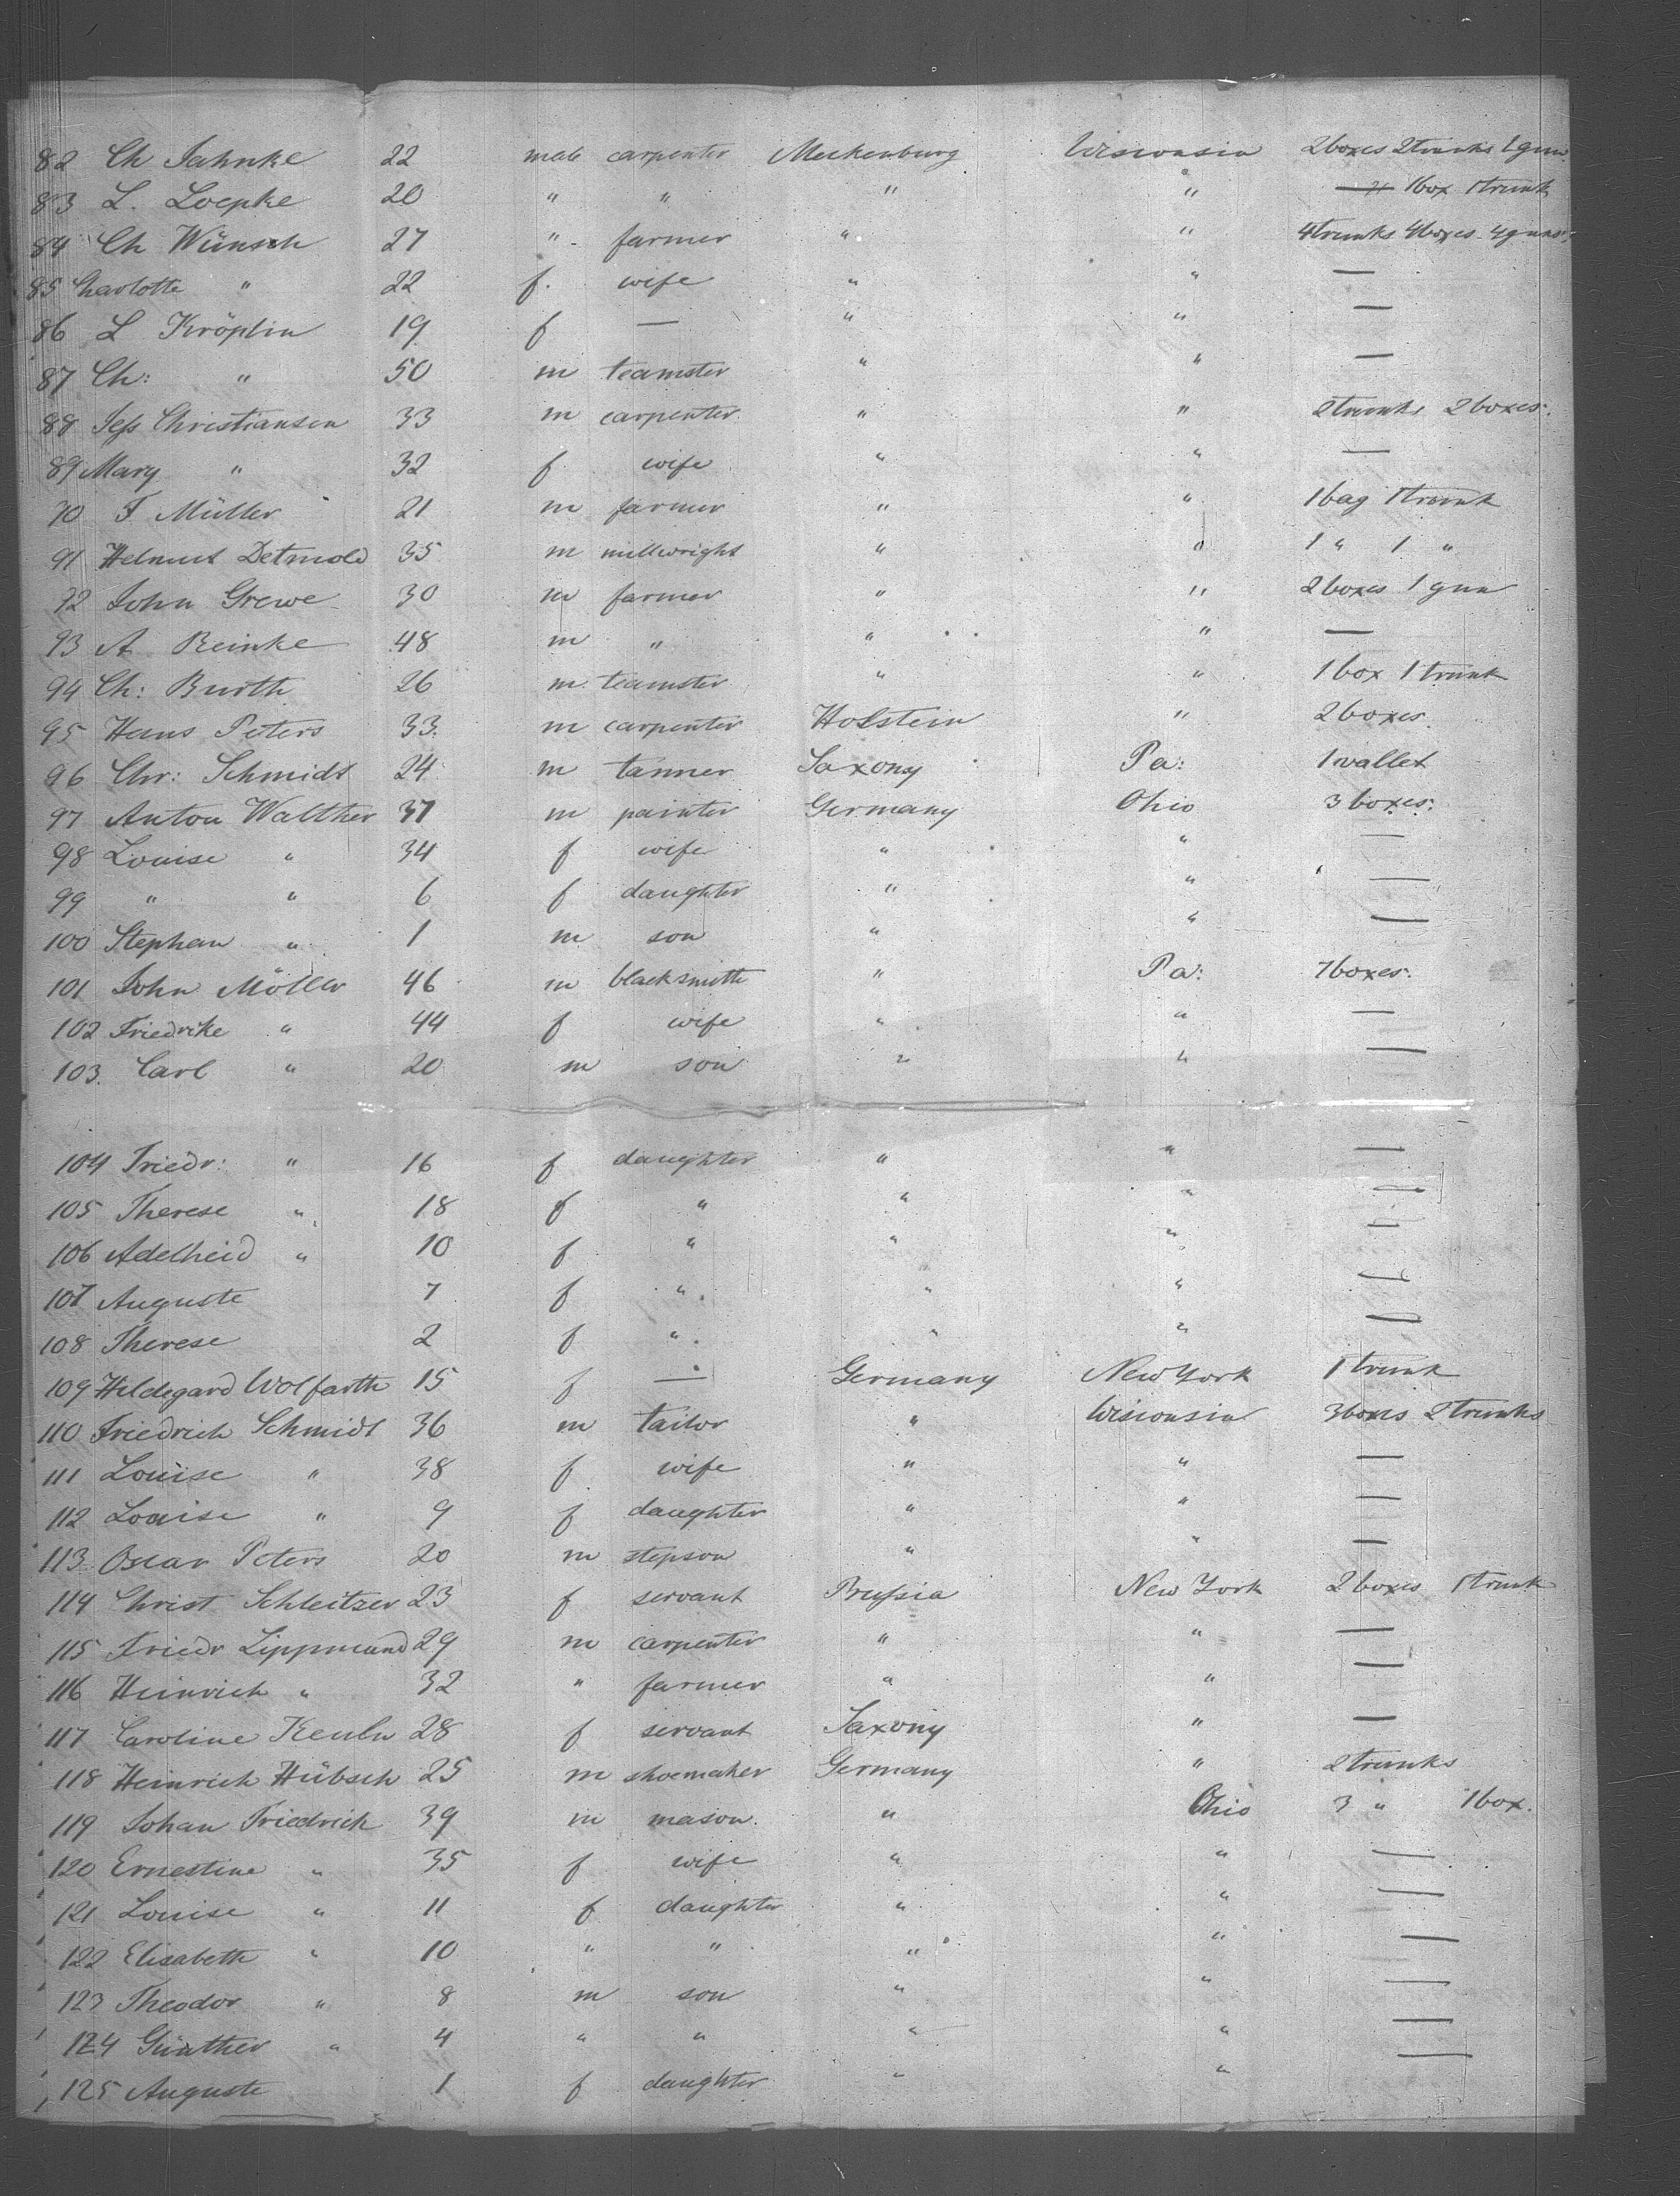 82 Ch Jahnke 22 male carpenter Meckenburg Wisconsin 2 boxes 2 trunks 1 gun
83 L. Loepke 20 " " " " 1 box 1 trunk
84 Ch Wünsch 27 " farmer " " 4 trunks 4 boxes 4 guns
85 Charlotte " 22 f. wife " " —
86 L Kröplin 19 f — " " —
87 Ch: " 50 m teamster " " —
88 Jess Christiansen 33 m carpenter " " 2 trunks 2 boxes.
89 Mary " 32 f wife " " —
90 F Müller 21 m farmer " " 1 bag 1 trunk
91 Helmut Detmold 35 m millwright " " 1 " 1 "
92 John Grewe 30 m farmer " " 2 boxes 1 gun
93 A Reinke 48 m " " " —
94 Ch: Burth 26 m teamster " " 1 box 1 trunk
95 Hans Peters 33 m carpenter Holstein " 2 boxes.
96 Chr: Schmidt 24 m tanner Saxony Pa: 1 wallet
97 Anton Walther 37 m painter Germany Ohio 3 boxes:
98 Louise " 34 f wife " " —
99 " " 6 f daughter " " —
100 Stephan " 1 m son " " —
101 John Möller 46 m blacksmith " Pa: 7 boxes:
102 Friedrike " 44 f wife " " —
103. Carl " 20 m son " " —
104 Friedr: " 16 f daughter " " —
105 Therese " 18 f " " " —
106 Adelheid " 10 f " " " —
107 Auguste 7 f " " " —
108 Therese 2 f " " " —
109 Hildegard Wolfarth 15 f — Germany New York 1 trunk
110 Friedrich Schmidt 36 m tailor " Wisconsin 3 boxes 2 trunks
111 Louise " 38 f wife " " —
112 Louise " 9 f daughter " " —
113 Oscar Peters 20 m stepson " " —
114 Christ Schleitzer 23 f servant Prussia New York 2 boxes 1 trunk
115 Friedr Lippmand 29 m carpenter " " —
116 Heinrich " 32 " farmer " " —
117 Caroline 28 f servant Saxony " —
118 Heinrich Hübsch 25 m shoemaker Germany " 2 trunks
119 Johan Friedrich 39 m mason. " Ohio 3 " 1 box.
120 Ernestine " 35 f wife " " —
121 Louise " 11 f daughter " " —
122 Elisabeth " 10 " " " " —
123 Theodor " 8 m son " " —
124 Günther " 4 " " " " —
125 Auguste 1 f daughter " " —